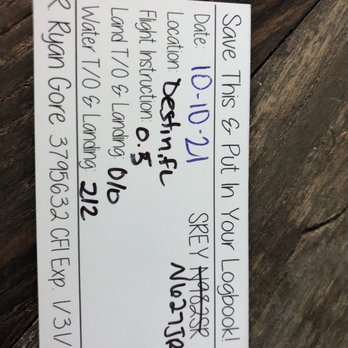 Save This & Put In Your Logbook!
Date: 10-10-21 SREY N982SR
Location: Destin, FL
Flight Instruction: 0.5
Land T/O & Landing: 0/0
Water T/O & Landing: 2/2
R Ryan Gore 3795632 CFI Exp.